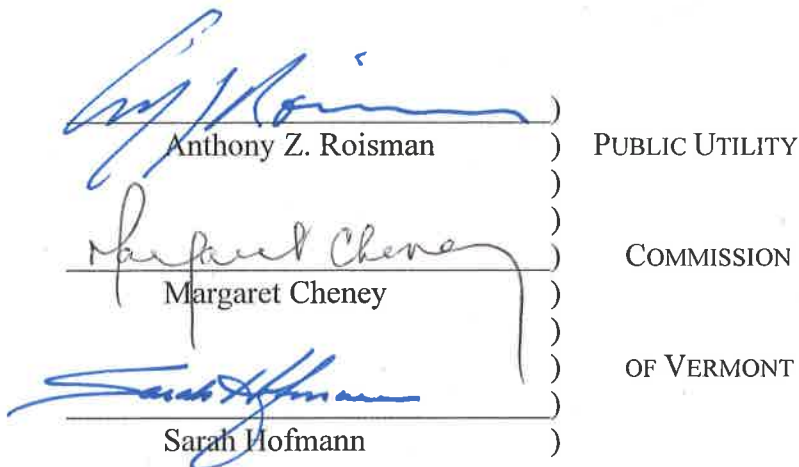 Anthony Z. Roisman ) PUBLIC UTILITY
)
)
Margaret Cheney ) COMMISSION
Margaret Cheney )
)
) OF VERMONT
Sarah Hofmann )
Sarah Hofmann )